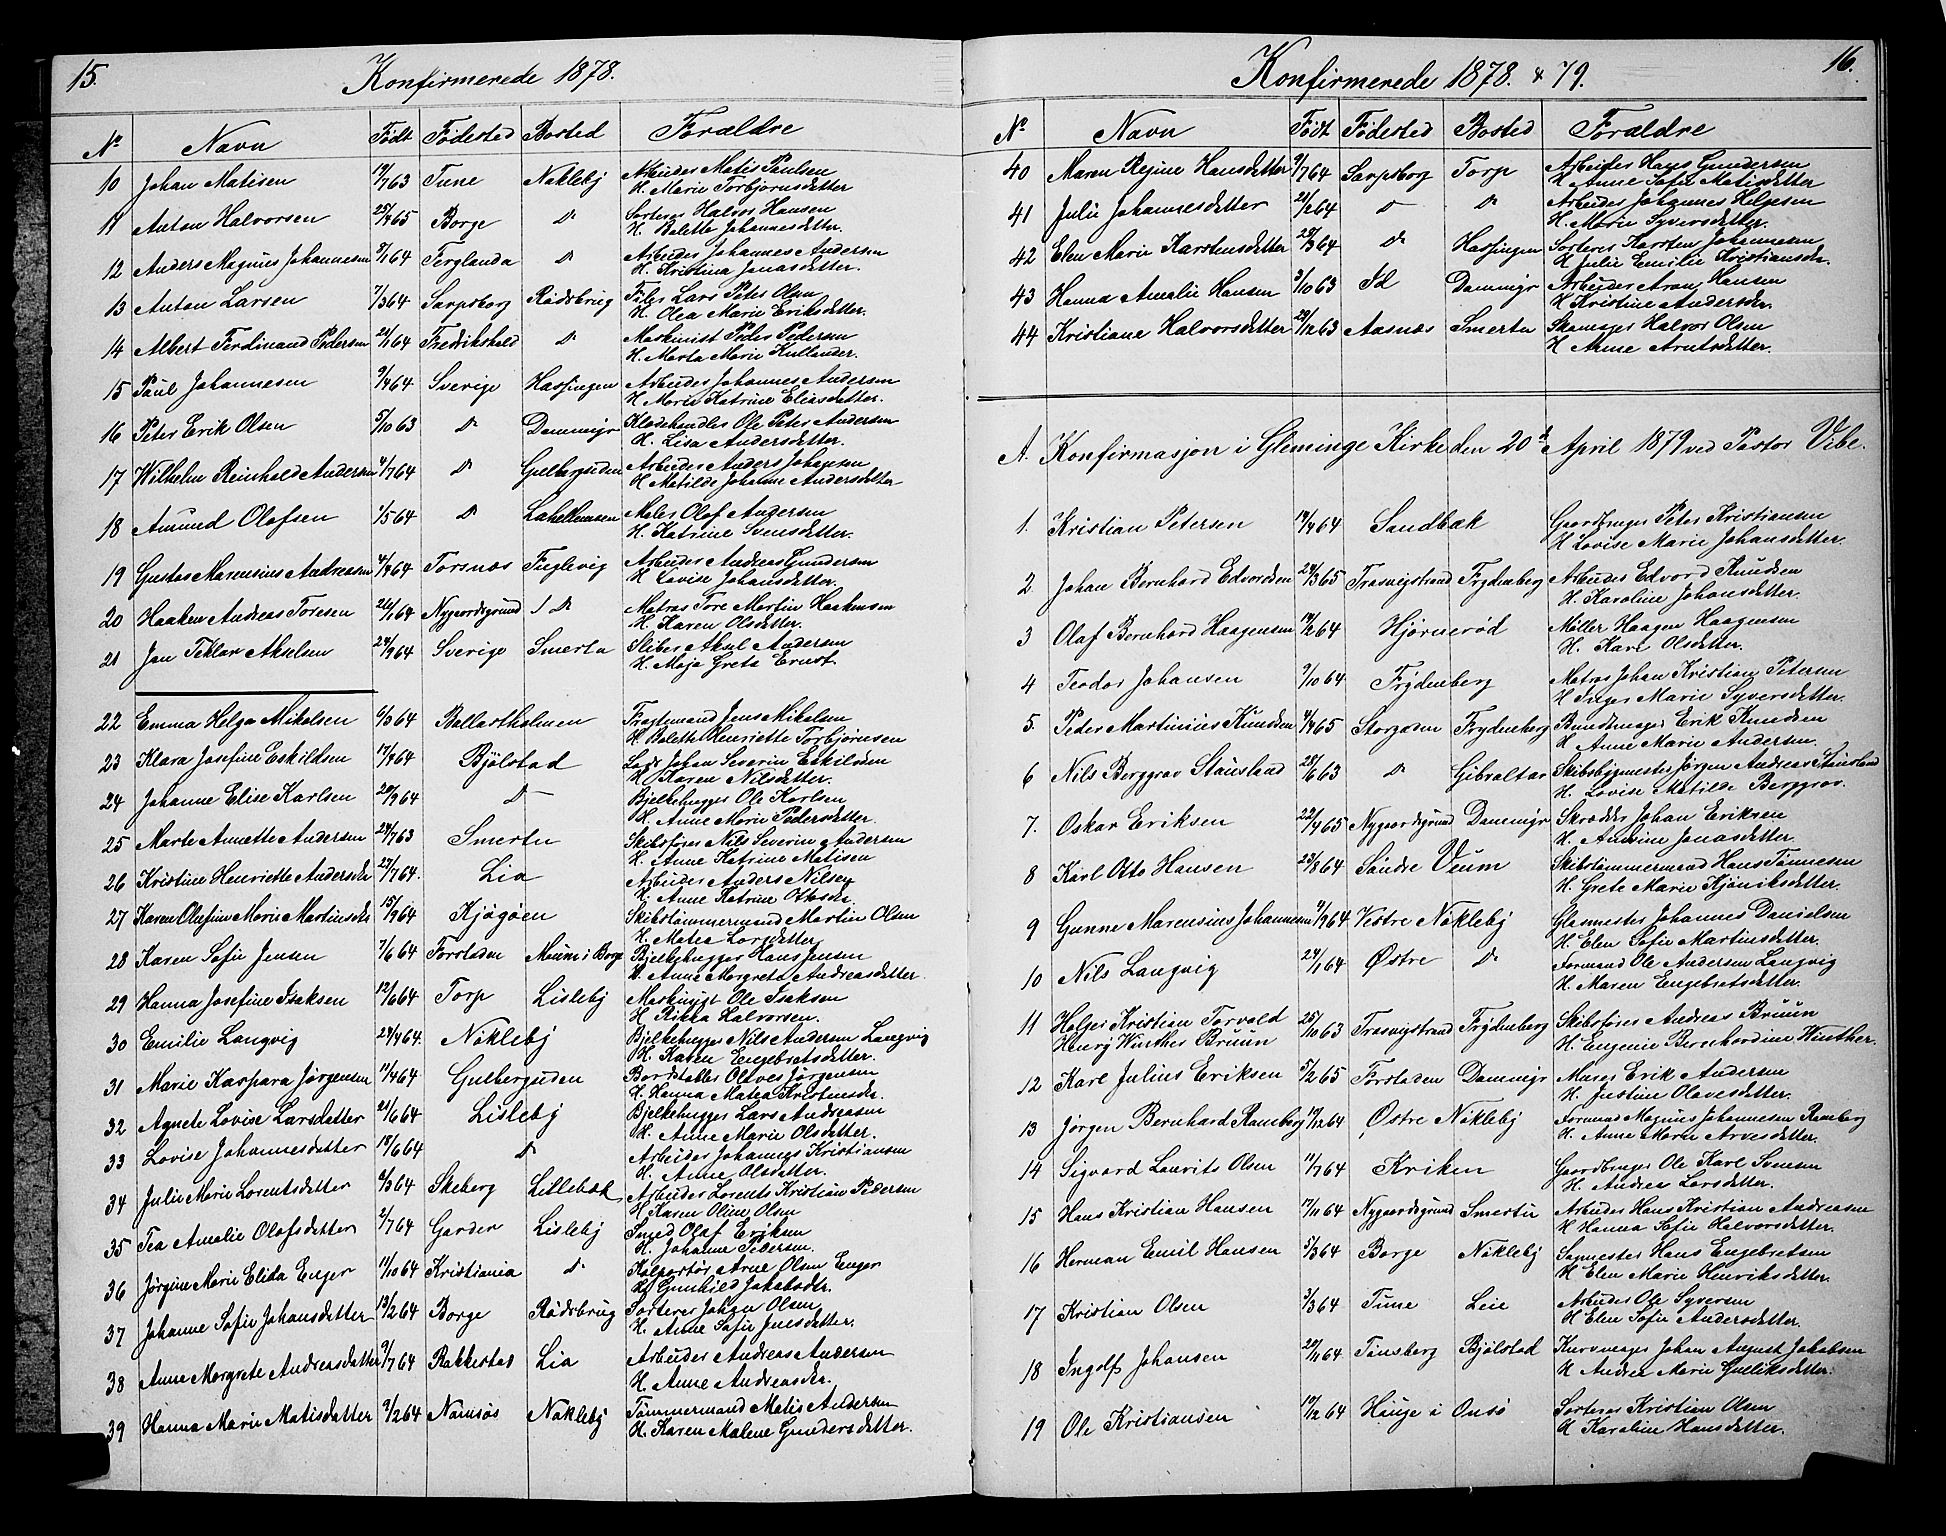 15.
Konfirmerede 1878.
No Navn Født Fødested Bosted Forældre
10 Johan Matisen 17/763 Tune Nøkleby Arbeider Matis Paulsen
H. Marie Torbjørnsdatter
11 Anton Halvorsen 25/465 Borge do Sorterer Halvor Hansen
H. Bolette Johannesdatter.
12 Anders Magnus Johannesen 7/164 Terglanda do Arbeider Johannes Andersen
H. Kristina Jonasdetter.
13 Anton Larsen 7/364 Sarpsborg Rødsbrug Filer Lars Peter Olsen
H. Olea Marie Eriksdetter.
14 Albert Ferdinand Pedersen 22/164 Fredrikshald do Maskinist Peder Pedersen
H. Marta Marie Kullander.
15 Paul Johannesen 9/464 Sverige Hassingen Arbeider Johannes Andersen
H Marie Katrine Eliasdetter.
16 Peter Erik Olsen 5/1063 do Dammyr Klædehandler Ole Peter Andersen
H. Lisa Andersdetter.
17 Wilhelm Reinhold Andersen 4/764 do Gulbergsiden Arbeider Anders Johansen
H Matilde Johanne Andersdetter
18 Amund Olofsen 1/564 do Lahellemsen Maler Olof Andersen
H. Katrine Svensdetter.
19 Gustav Marensius Andreasen 4/464 Torsnæs Fuglevig Arbeider Andreas Gundersen
H Lovise Johansdetter.
20 Haaken Andreas Toresen 26/164 Nygaardsgrund do Matros Tore Martin Haakensen
H. Karen Olsdetter.
21 Jan Teklar Akselsen 24/964 Sverige Smerta Sliber Aksel Andersen
H. Maja Greta Ernst.
22 Emma Helga Mikelsen 6/364 Ballastholmen Fragtemand Jens Mikelsen
H. Bolette Henriette Torbjørnsen
23 Klara Josefine Eskildsen 17/464 Bjølstad Lods Johan Severin Eskildsen
H. Karen Nilsdetter.
24 Johanne Elise Karlsen 20/964 do Bjelkehugger Ole Karlsen
H. Anne Marie Pedersdetter.
25 Marte Annette Andersen 24/763 Smertu Skibsfører Nils Severin Andersen
H. Anne Katrine Matisen
26 Kristine Henriette Andersdr 27/764. Lia Arbeider Anders Nilsen
H. Anne Katrine Ottosdr.
27 Karen Olufine Marie Martinsdr 15/964 Kjøgøen Skibstømmermand Martin Olsen
H. Matea Larsdetter
28 Karen Sofie Jensen 7/664 Forstaden Moum i Borge Bjelkehugger Hans Jensen
H. Anne Margrete Andreasdetter.
29 Hanna Josefine Isaksen 12/664 Torp Lisleby Maskinist Ole Isaksen
H. Rikka Halvorsen.
30 Emilie Langvig 24/464. Nøkleby Bjelkehugger Nils Andersen Langvig
H. Karen Engebretsdetter.
31 Marie Kaspara Jørgensen 11/464 Gulbergsiden Bordstabler Olaves Jørgensen
H. Hanna Matea Kristensdr.
32 Agnete Lovise Larsdatter 21/664 Lisleby Bjelkehugger Lars Andreasen
H. Anne Marie Olsdetter.
33 Lovise Johannesdetter 18/664 do Arbeider Johannes Kristiansen
H. Anne Olsdetter.
34 Julie Marie Lorentsdetter 6/364 Skeberg Lillebæk Arbeider Lorents Kristian Pedersen
H Karen Oline Olsen
35 Tea Amalie Olafsdetter 2/764 Garder Lisleby Smed Olaf Eriksen
H. Johanne Pedersen.
36 Jørgine Marie Elida Enger 11/1064 Kristiania do Kolportør Arne Olsen Enger
H. Gunhild Jakobsdr.
37 Johanne Sofie Johansdetter 19/264 Borge Rødsbrug Sorterer Johan Olsen
H. Anne Sofie Jensdetter.
38 Anne Margrete Andreasdatter 3/764 Rakkestad Lia Arbeider Andreas Andersen
H. Anne Andreasdr.
39 Hanna Marie Matisdatter 9/264 Namsøs Nøkleby Tømmermand Matis Andersen
H. Karen Malene Gundersdetter.
16.
Konfirmerede 1878. & 79.
No Navn Født Fødested Bosted Forældre
40 Maren Regine Hansdetter 9/764 Sarpsborg Torp Arbeider Hans Gundersen
H Anne Sofie Matisdetter
41 Julie Johannesdetter 21/264 do do Arbeider Johannes Helgesen
H. Marie Syversdetter.
42 Elen Marie Karstensdetter 28/364 do Hassingen Sorterer Karsten Johannesen
H Julie Emilie Kristiansdr.
43 Hanna Amalie Hansen 3/1063 Id Dammyr Arbeider Aron Hansen
H Kristine Andersdr.
44 Kristiane Halvorsdetter 29/1263 Aasnæs Smertu Skomager Halvor Olsen
H Anne Arntsdetter.
A. Konfirmasjon i Glemminge Kirke den 20de April 1879 ved Pastor Vibe.
1. Kristian Petersen 19/464 Sandbæk Gaardbruger Peter Kristiansen
H Lovise Marie Johansdetter.
2 Johan Bernhard Edvardsen 24/365 Trosvigstrand Frydenberg Arbeider Edvard Knudsen
H. Karoline Johansdetter.
3 Olaf Bernhard Haagensen 14/264 Hjørnerød Møller Haagen Haagensen
H. Kari Olsdetter.
4 Teodor Johansen 7/1064 Frydenberg Matros Johan Kristian Petersen
H Inger Marie Syversdetter.
5. Peder Martinius Knudsen 4/465 Storgaden Frydenberg Bundtmager Erik Knudsen
H Anne Marie Andersen.
6 Nils Berggrav Stausland 28/663 do Gibraltar Skibsbygmester Jørgen Andreas Stausland
H. Lovise Matilde Berggrav.
7. Oskar Eriksen 22/465 Nygaardsgrund Dammyr Skrædder Johan Eriksen
H. Andrine Jonasdetter.
8 Karl Otto Hansen 23/864 Søndre Veum Skibstømmermand Hans Tønnesen
H. Grete Marie Kjøniksdetter.
9 Gunne Marensius Johannesen 9/964 Vestre Nøkleby Glasmester Johannes Danielsen
H. Elen Sofie Martinsdetter.
10 Nils Langvig 24/164 Østre do Formand Ole Andersen Langvig
H. Maren Engebretsdetter.
11 Holger Kristian Torvald 25/1063 Trosvigstrand Frydenberg Skibsfører Andreas Bruun
Henry Winther Bruun H. Eugenie Bernhardine Winther.
12 Karl Julius Eriksen 5/265 Forstaden Dammyr Murer Erik Andersen
H. Justine Olavesdetter.
13 Jørgen Bernhard Ramberg 19/1264 Østre Nøkleby Formand Magnus Johannesen Ramberg
H. Anne Marie Arvesdetter.
14 Sigvard Laurits Olsen 11/764 Kriken Gaardbruger Ole Karl Svensen
H. Andrea Larsdetter.
15 Hans Kristian Hansen 17/1164 Nygaardsgrund Smertu Arbeider Hans Kristian Andreasen
H Hanna Sofie Halvorsdetter.
16 Herman Emil Hansen 5/364 Borge Nøkleby Sagmester Hans Engebretsen
H Elen Marie Henriksdetter.
17 Kristian Olsen 3/364 Tune Leie Arbeider Ole Syversen
H Elen Sofie Andersdetter.
18 Ingolf Johansen 20/1164 Tønsberg Bjølstad Kurvmager Johan August Jakobsen
H Andrea Marie Gulliksdetter.
19 Ole Kristiansen 19/264 Hauge i Onsø Sorterer Kristian Olsen
H Karoline Hansdetter.